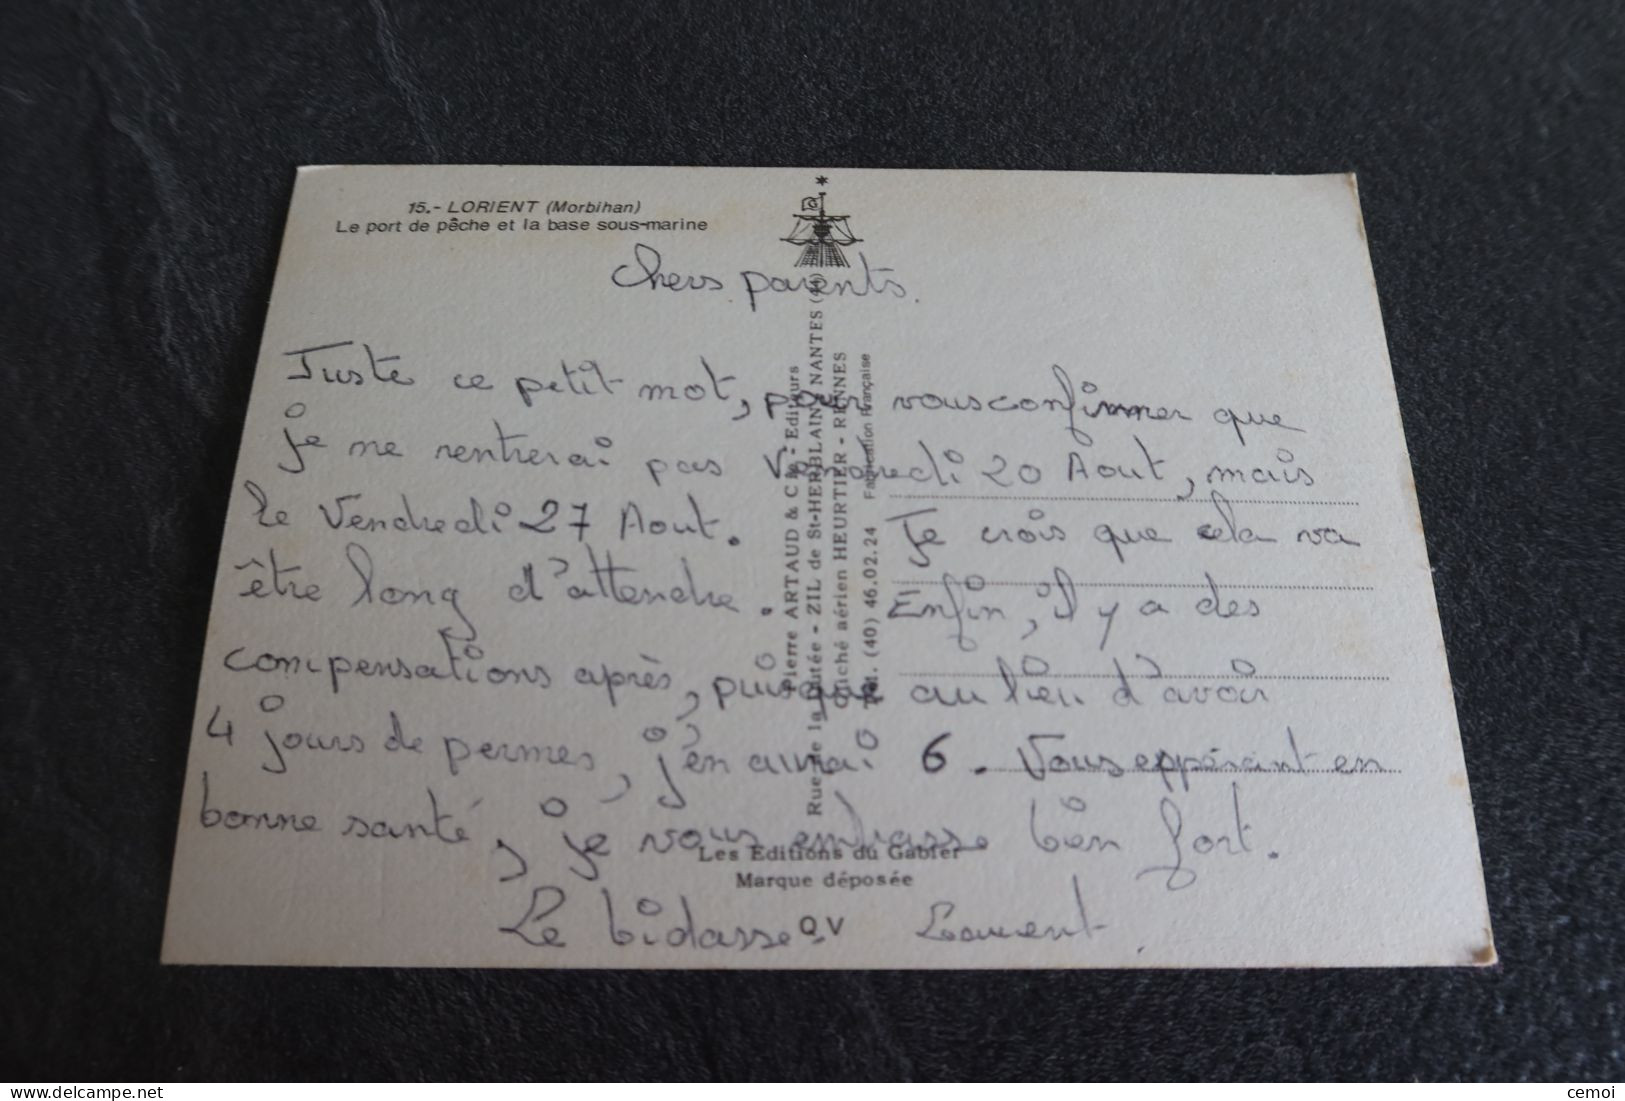 15.- LORIENT (Morbihan)
Le port de pêche et la base sous-marine
Chers parents.
Juste ce petit mot, pour vous confirmer que
je ne rentrerai pas Vendredi 20 Aout, mais
le Vendredi 27 Aout. Je crois que cela va
être long d'attendre. Enfin, il y a des
compensations après, puisque au lieu d'avoir
4 jours de permes, j'en aurai 6. Vous eppérant en
bonne santé, je vous embrasse bien fort.
Le bidasse. Laurent.
Pierre ARTAUD & Cie - Editeurs
Rue de la - ZIL de St-HERBLAIN NANTES (44)
Cliché aérien HEURTIER - RENNES
Tél. (40) 46.02.24 Fabrication Française
Les Editions du Gabier
Marque déposée
QV
cemoi